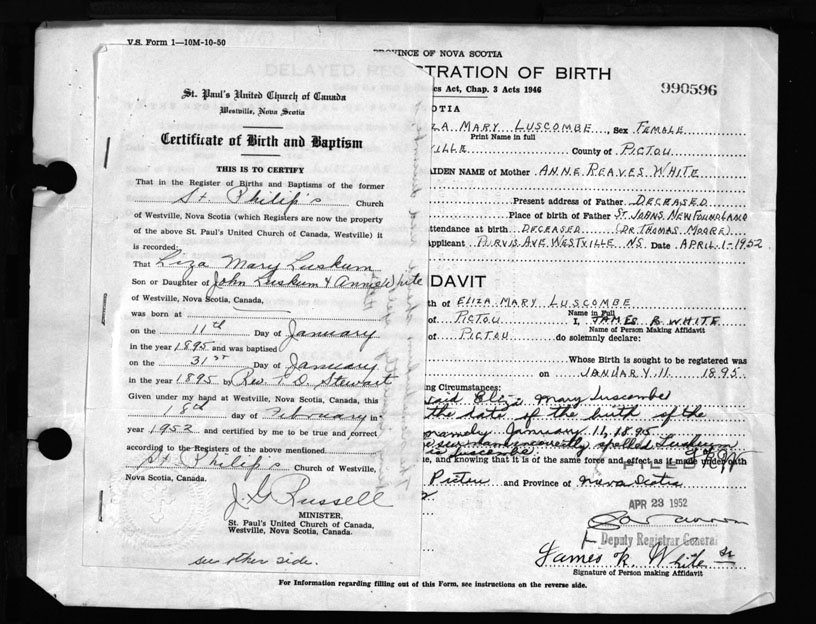 V.S. Form 1—10M-10-50
St. Paul's United Church of Canada
Westville, Nova Scotia
Certificate of Birth and Baptism
THIS IS TO CERTIFY
That in the Register of Births and Baptisms of the former
St. Philip's Church
of Westville, Nova Scotia (which Registers are now the property
of the above St. Paul's United Church of Canada, Westville) it
is recorded:
That Liza Mary Luskum
Son or Daughter of John Luskum & Annie White
of Westville, Nova Scotia, Canada,
was born at
on the 11th Day of January
in the year 1895 and was baptised
on the 31st Day of January
in the year 1895 by Rev. T. D. Stewart
Given under my hand at Westville, Nova Scotia, Canada, this
18th day of February in
year 1952 and certified by me to be true and correct
according to the Registers of the above mentioned
St. Philip's Church of Westville,
Nova Scotia, Canada.
J. G. Russell
MINISTER,
St. Paul's United Church of Canada,
Westville, Nova Scotia, Canada.
see other side.
PROVINCE OF NOVA SCOTIA
DELAYED REGISTRATION OF BIRTH
ics Act, Chap. 3 Acts 1946
990596
OTIA
IZA MARY LUSCOMBE, Sex FEMALE
Print Name in full
VILLE County of PICTOU
AIDEN NAME of Mother ANNE REAVES WHITE
Present address of Father DECEASED
Place of birth of Father ST. JOHNS NEWFOUNDLAND
attendance at birth DECEASED (DR. THOMAS MOORE)
pplicant PURVIS AVE. WESTVILLE N.S. Date APRIL-1-1952
DAVIT
th of ELIZA MARY LUSCOMBE
Name in Full
of PICTOU I, JAMES R. WHITE
Name of Person Making Affidavit
of PICTOU do solemnly declare:
Whose Birth is sought to be registered was
on JANUARY 11 1895
ng Circumstances:
said Eliza Mary Luscombe
the date of the birth of the
namely January 11, 1895
incorrectly spelled Luskum
is Luscombe
ue, and knowing that it is of the same force and effect as if made under oath
Pictou and Province of Nova Scotia
APR 23 1952
Deputy Registrar General
James R. White Sr
Signature of Person making Affidavit
For Information regarding filling out of this Form, see instructions on the reverse side.